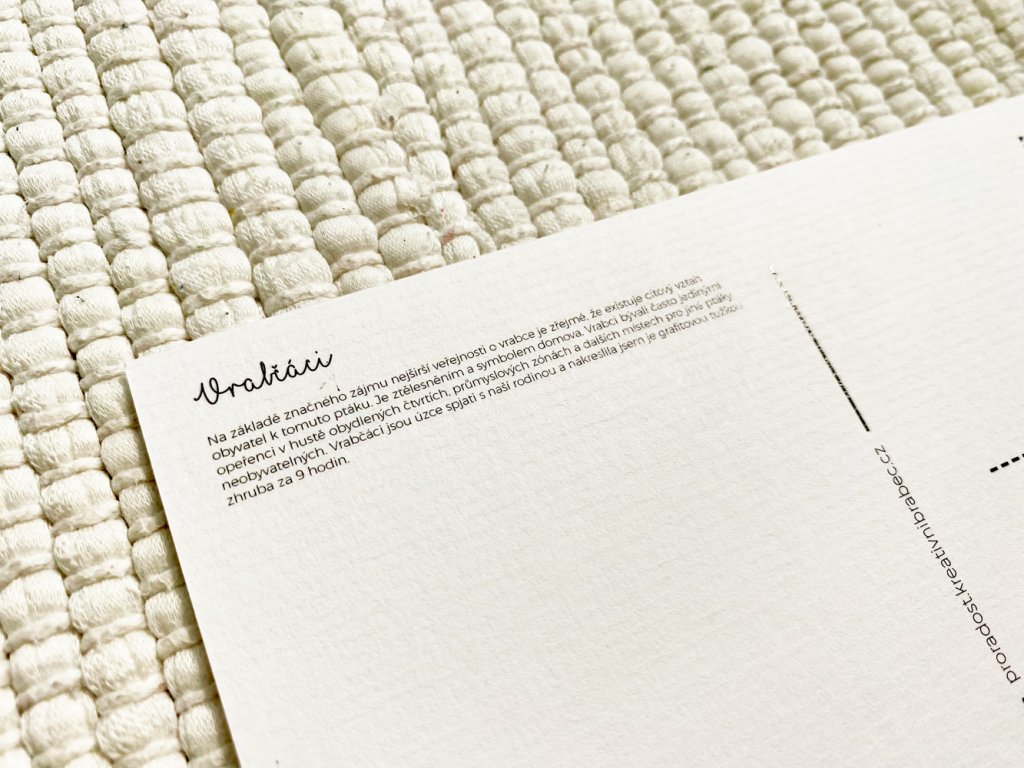 Vrabčáci
Na základě značného zájmu nejširší veřejnosti o vrabce je zřejmé, že existuje citový vztah
obyvatel k tomuto ptáku. Je ztělesněním a symbolem domova. Vrabci bývali často jedinými
opeřenci v hustě obydlených čtvrtích, průmyslových zónách a dalších místech pro jiné ptáky
neobyvatelných. Vrabčáci jsou úzce spjati s naší rodinou a nakreslila jsem je grafitovou tužkou
zhruba za 9 hodin.
proradost.kreativnibrabec.cz